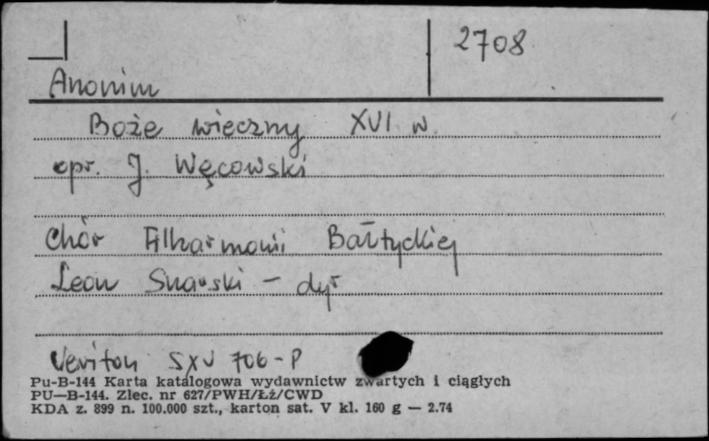 2708
Anonim
Boże wieczny XVI w.
opr. J. Węcowski
Chór Filharmonii Bałtyckiej
Leon Snarski - dyr
Veriton SXV 706-P
Pu-B-144 Karta katalogowa wydawnictw zwartych i ciągłych
PU—B-144. Zlec. nr 627/PWH/Łź/CWD
KDA z. 899 n. 100.000 szt., karton sat. V kl. 160 g — 2.74